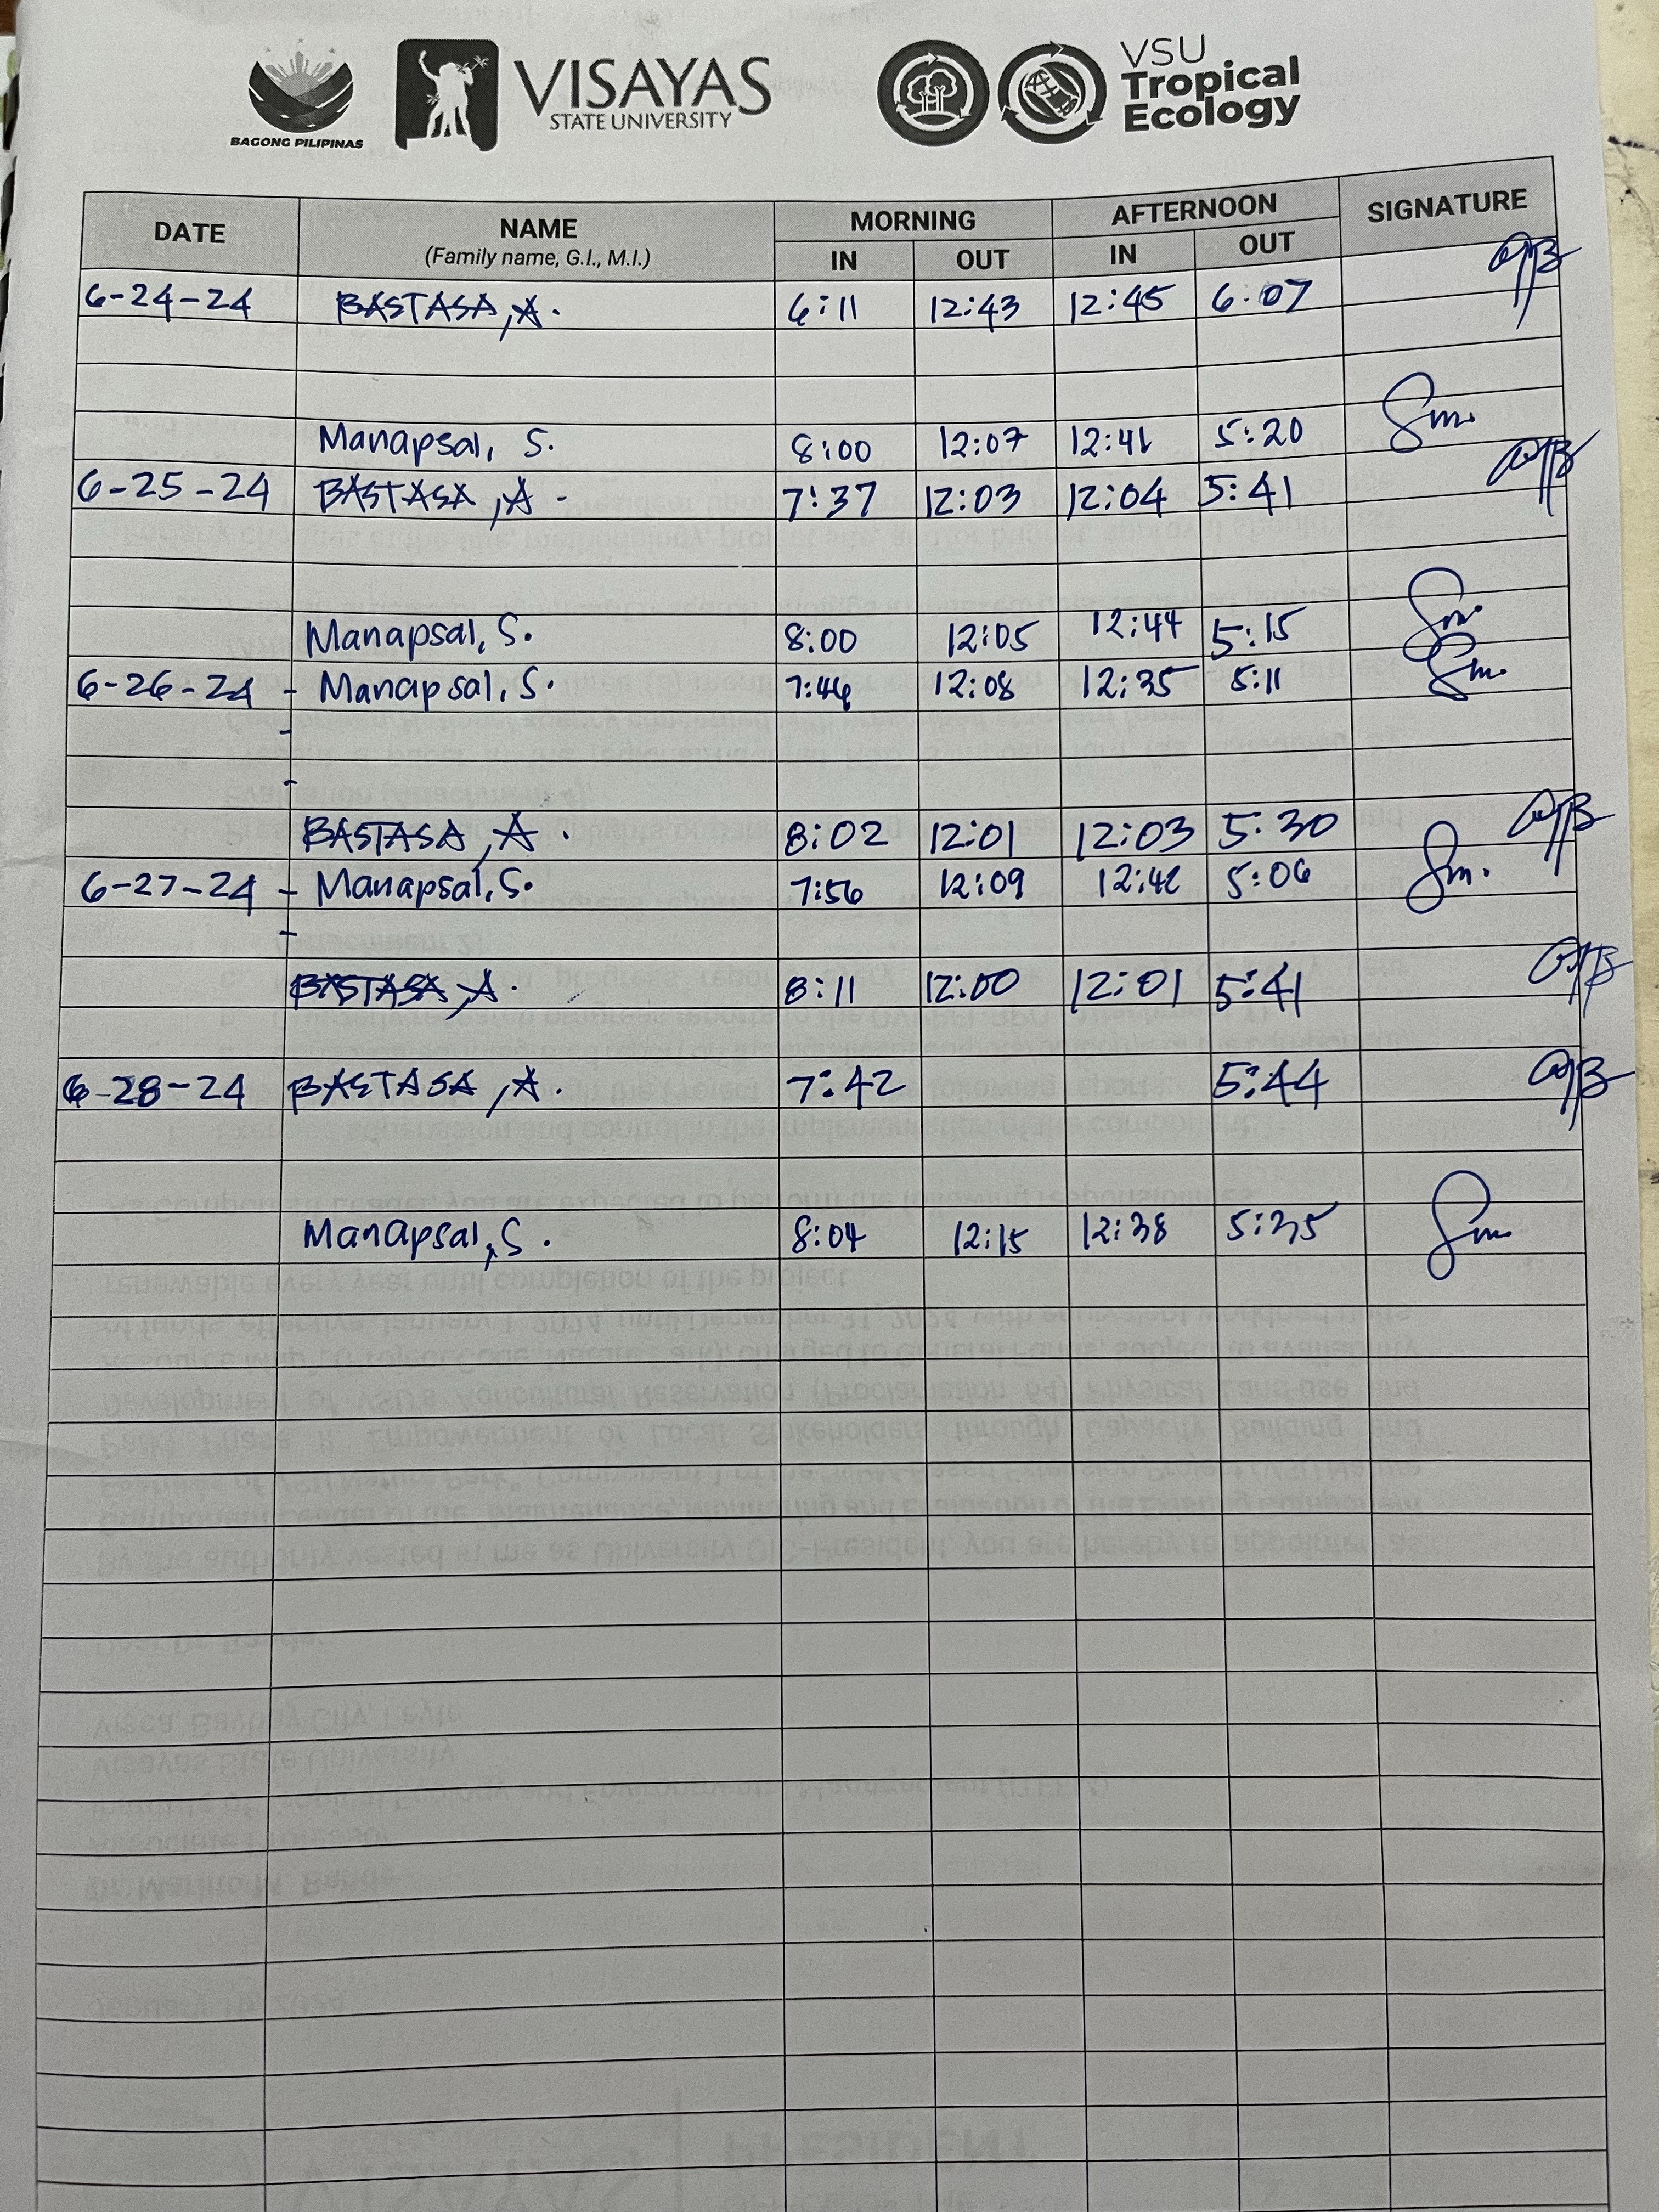 BAGONG PILIPINAS
VISAYAS
STATE UNIVERSITY
VSU
Tropical
Ecology
DATE NAME MORNING AFTERNOON SIGNATURE
(Family name, G.I., M.I.) IN OUT IN OUT
6-24-24 BASTASA, A. 6:11 12:43 12:45 6:07
Manapsal, S. 8:00 12:07 12:41 5:20 Sm.
6-25-24 BASTASA, A. 7:37 12:03 12:04 5:41
Manapsal, S. 8:00 12:05 12:44 5:15 Sm.
6-26-24 - Manapsal, S. 7:46 12:08 12:35 5:11 Sm.
-
-
BASTASA, A. 8:02 12:01 12:03 5:30
6-27-24 - Manapsal, S. 7:56 12:09 12:42 5:06 Sm.
-
BASTASA, A. 8:11 12:00 12:01 5:41
6-28-24 BASTASA, A. 7:42 5:44
Manapsal, S. 8:04 12:15 12:38 5:35 Sm